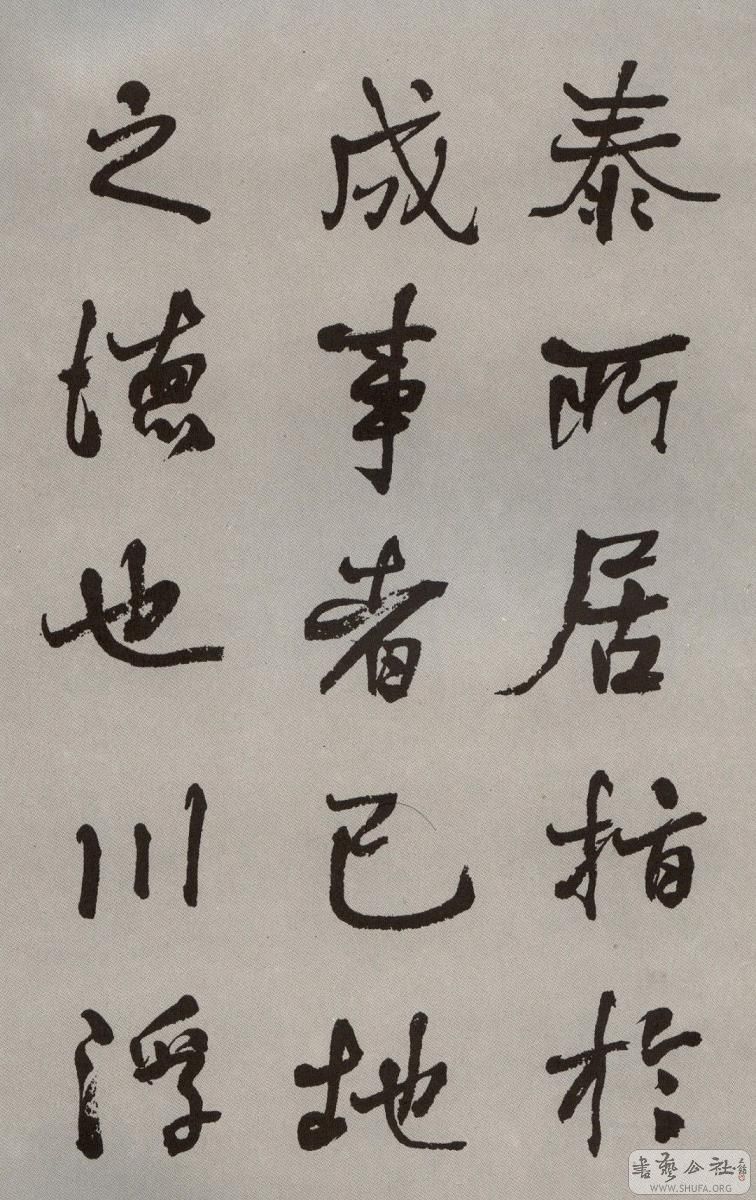 泰所居指於
成事者已地
之德也川浮
書藝公社
WWW.SHUFA.ORG